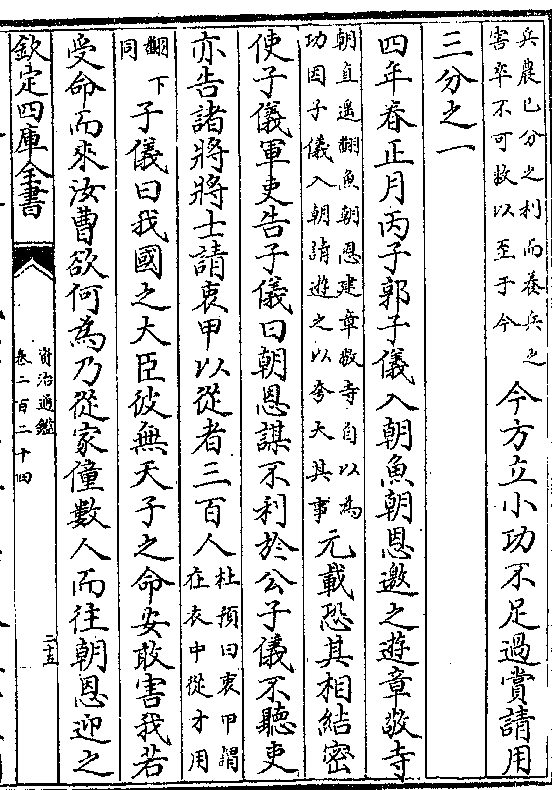 兵農已分之利而養兵之
害卒不可救以至于今
今方立小功不足過賞請用
三分之一
四年春正月丙子郭子儀入朝魚朝恩邀之遊章敬寺
朝直遥翻魚朝恩建章敬寺自以為
功因子儀入朝請遊之以夸大其事
元載恐其相結密
使子儀軍吏告子儀曰朝恩謀不利於公子儀不聽吏
亦告諸將將士請衷甲以從者三百人
杜預曰衷甲謂
在衣中從才用
翻下
同
子儀曰我國之大臣彼無天子之命安敢害我若
受命而來汝曹欲何為乃從家僮數人而往朝恩迎之
欽定四庫全書
資治通鑑
卷二百二十四
二十五